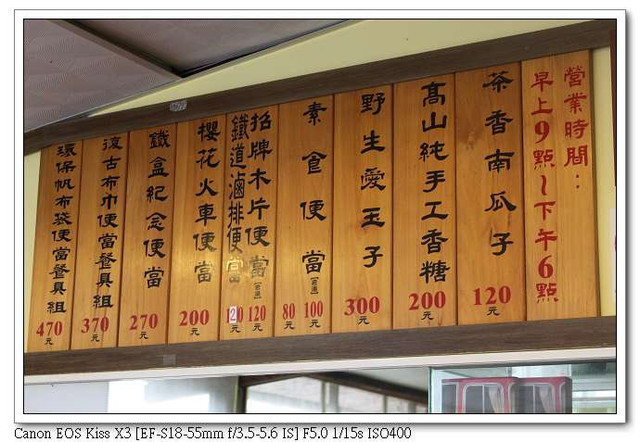 營業時間：
早上9點～下午6點
茶香南瓜子
120元
高山純手工香糖
200元
野生愛玉子
300元
素食便當
100元
80元
招牌木片便當
120元
鐵道滷排便當
120元
櫻花火車便當
200元
鐵盒紀念便當
270元
復古布巾便當餐具組
370元
環保帆布袋便當餐具組
470元
Canon EOS Kiss X3 [EF-S18-55mm f/3.5-5.6 IS] F5.0 1/15s ISO400